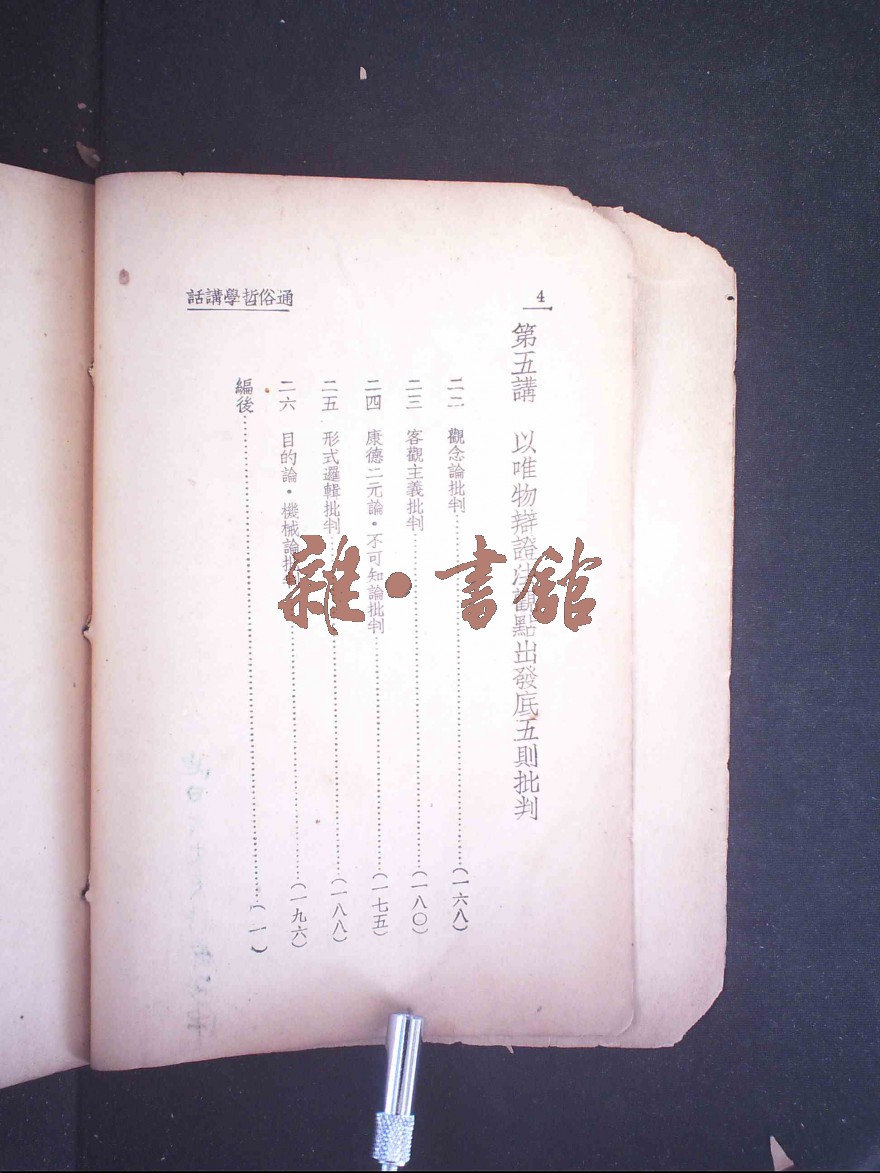 4
通俗哲學講話
第五講　以唯物辯證法觀點出發底五則批判
二二　觀念論批判……………(一六八)
二三　客觀主義批判……………(一八〇)
二四　康德二元論・不可知論批判……………(一七五)
二五　形式邏輯批判……………(一八八)
二六　目的論・機械論批判……………(一九六)
編後……………(一)
雜・書館